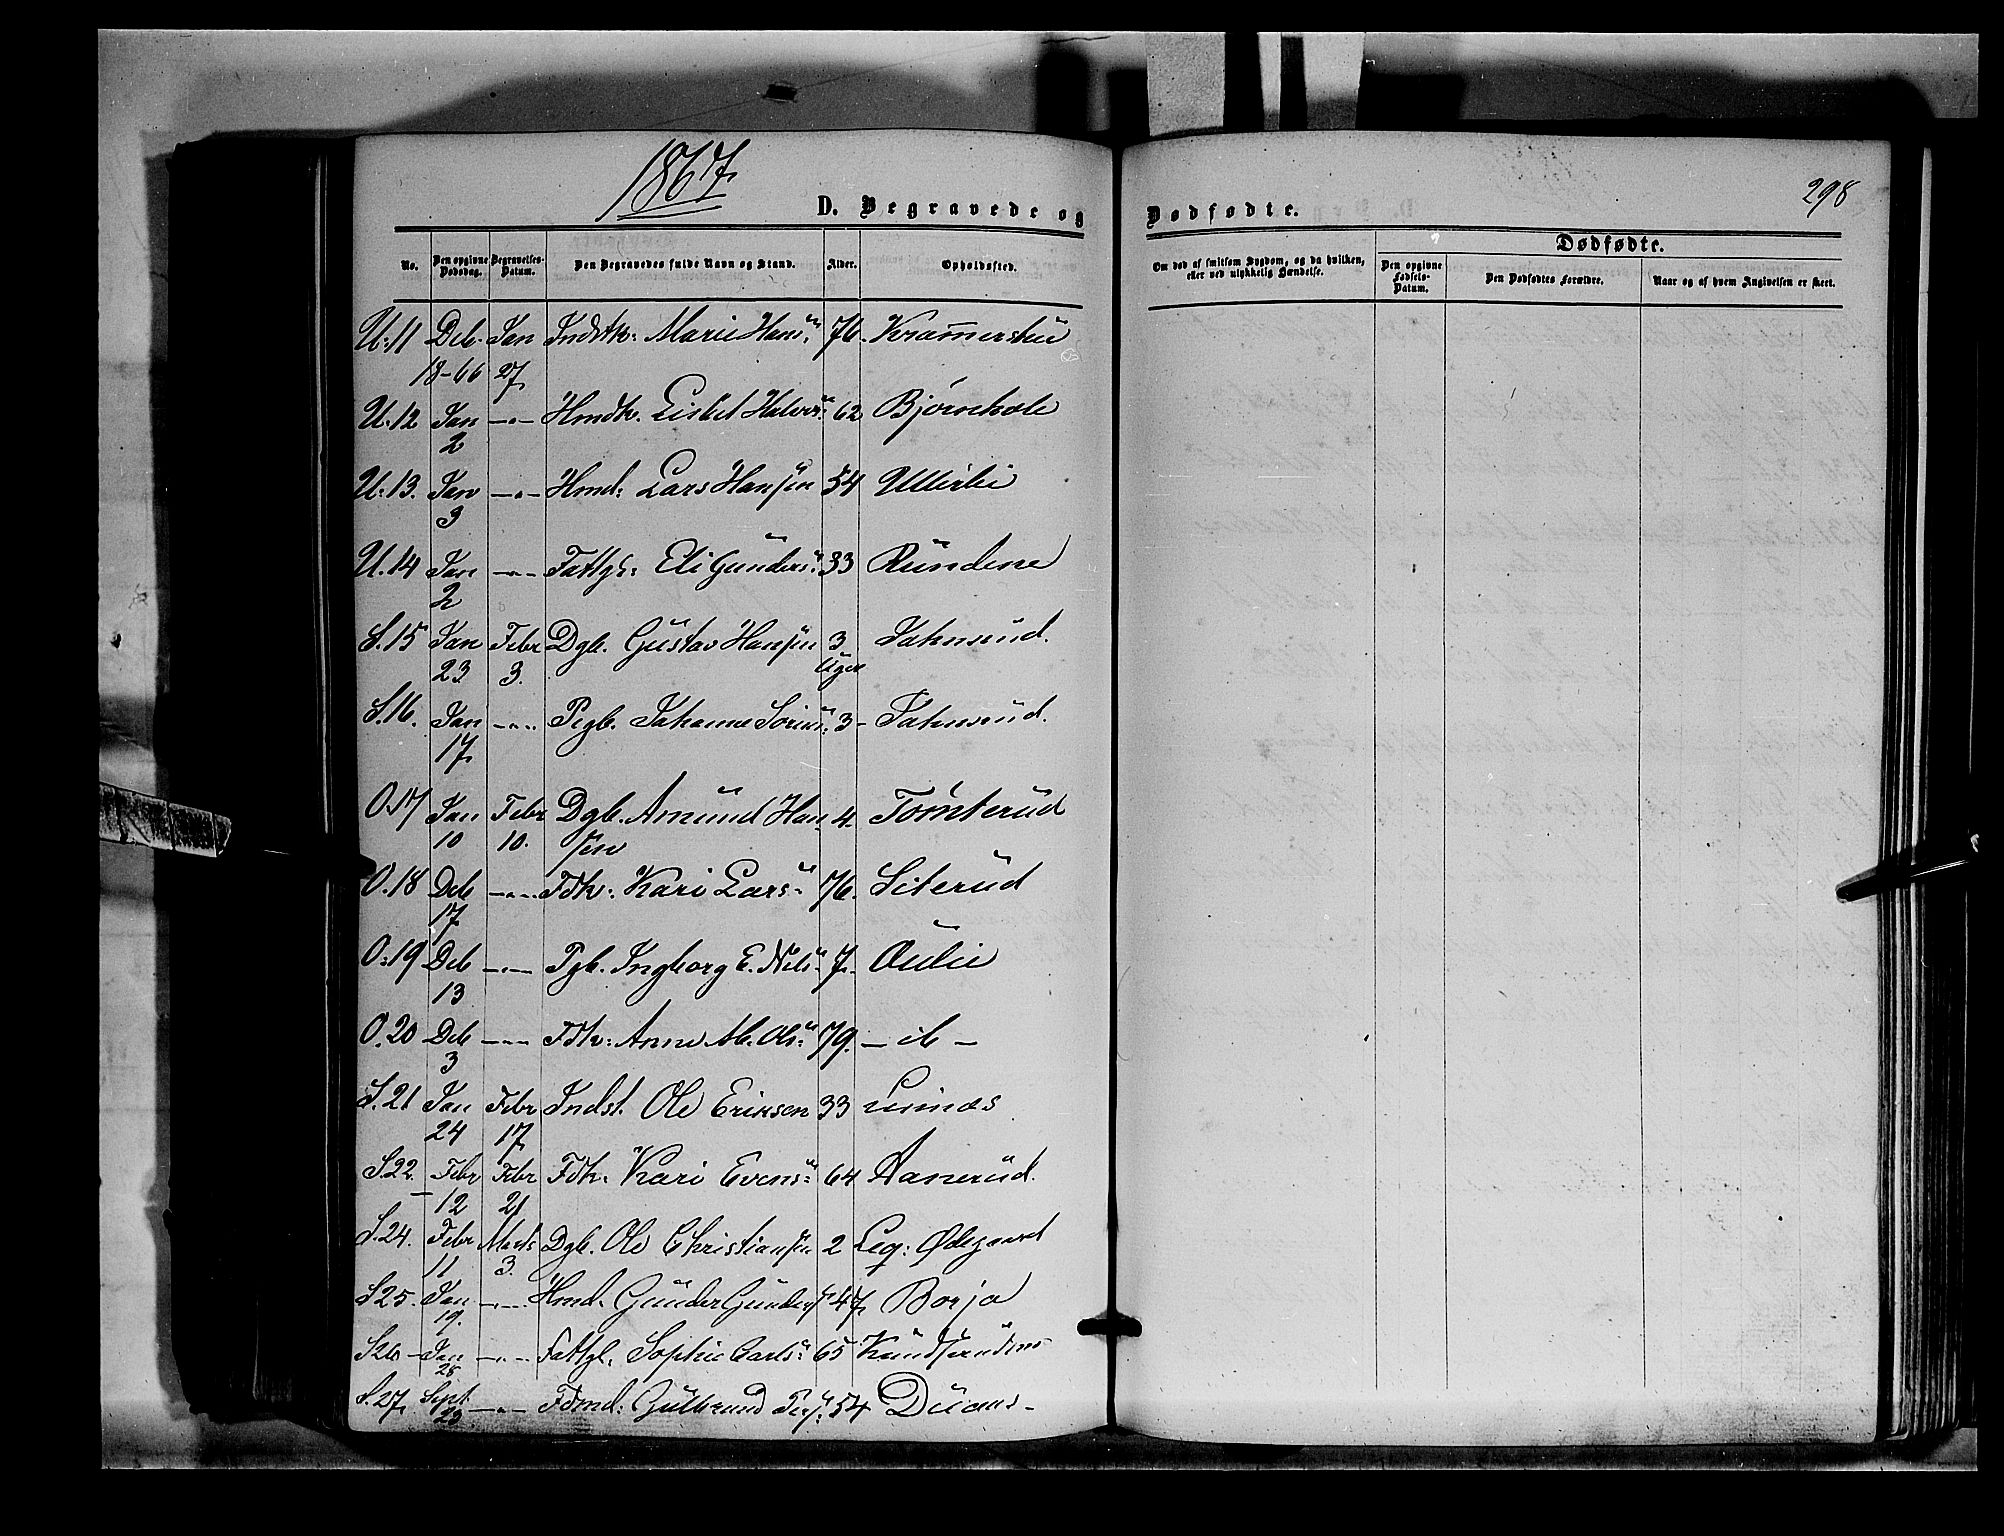 1867
298
D. Begravede og Dødfødte.
Dødfødte.
No. Den opgivne Dødsdag. Begravelses-Datum. Den Begravedes fulde Navn og Stand. Alder. Opholdssted. Om død af smitsom Sygdom, og da hvilken, eller ved ulykkelig Hændelse. Den opgivne Fødsels-Datum. Den Dødfødtes Forældre. Naar og af hvem Angivelsen er skeet.
U. 11 Deb. Jan Indstk: Marie Hans: 76.
18-66 27
U. 12 Jan -"- Hmdk. Lisbet Halvors: 62 Bjørnhole
2
U. 13. Jan -"- Hmd: Lars Hansen 54 Ullerlie
3
U. 14 Jan -"- Fattgl: Eli Gunders: 33 Rundene
2
S. 15 Jan Febr Dgb. Gustav Hansen 3 Jahnsrud.
23 3. Uger
S. 16. Jan -"- Pigb. Johanne Sørine: 3 - Jahnsrud.
17
O. 17 Jan Febr Dgb. Amund Han 4. Tomterud
10 10. sen
O. 18 Deb -"- Fdk: Kari Lars: 76. Seterud
17
O. 19 Deb -"- Pgb. Ingborg E. Nils: 7. Oulie
13
O. 20 Deb -"- Fdk: Anne M. Ols: 79. - ib -
3
S. 21 Jan Febr Indst. Ole Eriksen 33 Lunnæs
24 17
S. 22. Febr Febr Fdk. Kari Evens: 64 Aanerud.
12 21
S. 24. Febr Marts Dgb. Ole Christiansen 2 Leq: Ødegaard
11 3.
S 25. Jan -"- Hmd. Gunder Gunders: 47 Borja
19.
S 26 - Jan -"- Fattgl. Sophie Carls: 65
28
S. 27. Sept. -"- Fdmd: Gulbrand 54
23